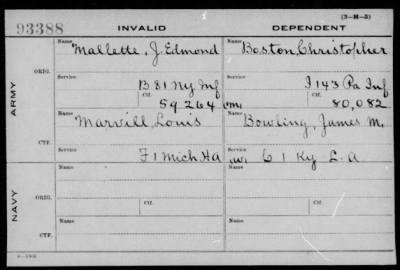 (3-H-5)
93388 INVALID DEPENDENT
Name Mallette, J. Edmond Name Boston, Christopher
ARMY ORIG. Service B 81 Ny Inf Service I 143 Pa Inf
Ctf. 59264 (m) Ctf. 80,082
CTF. Name Marvill Louis Name Bowling, James M.
Service F 1 Mich. Ha (W) Service G 1 Ky L. A.
NAVY ORIG. Name Ctf. Name Ctf.
CTF. Name Name